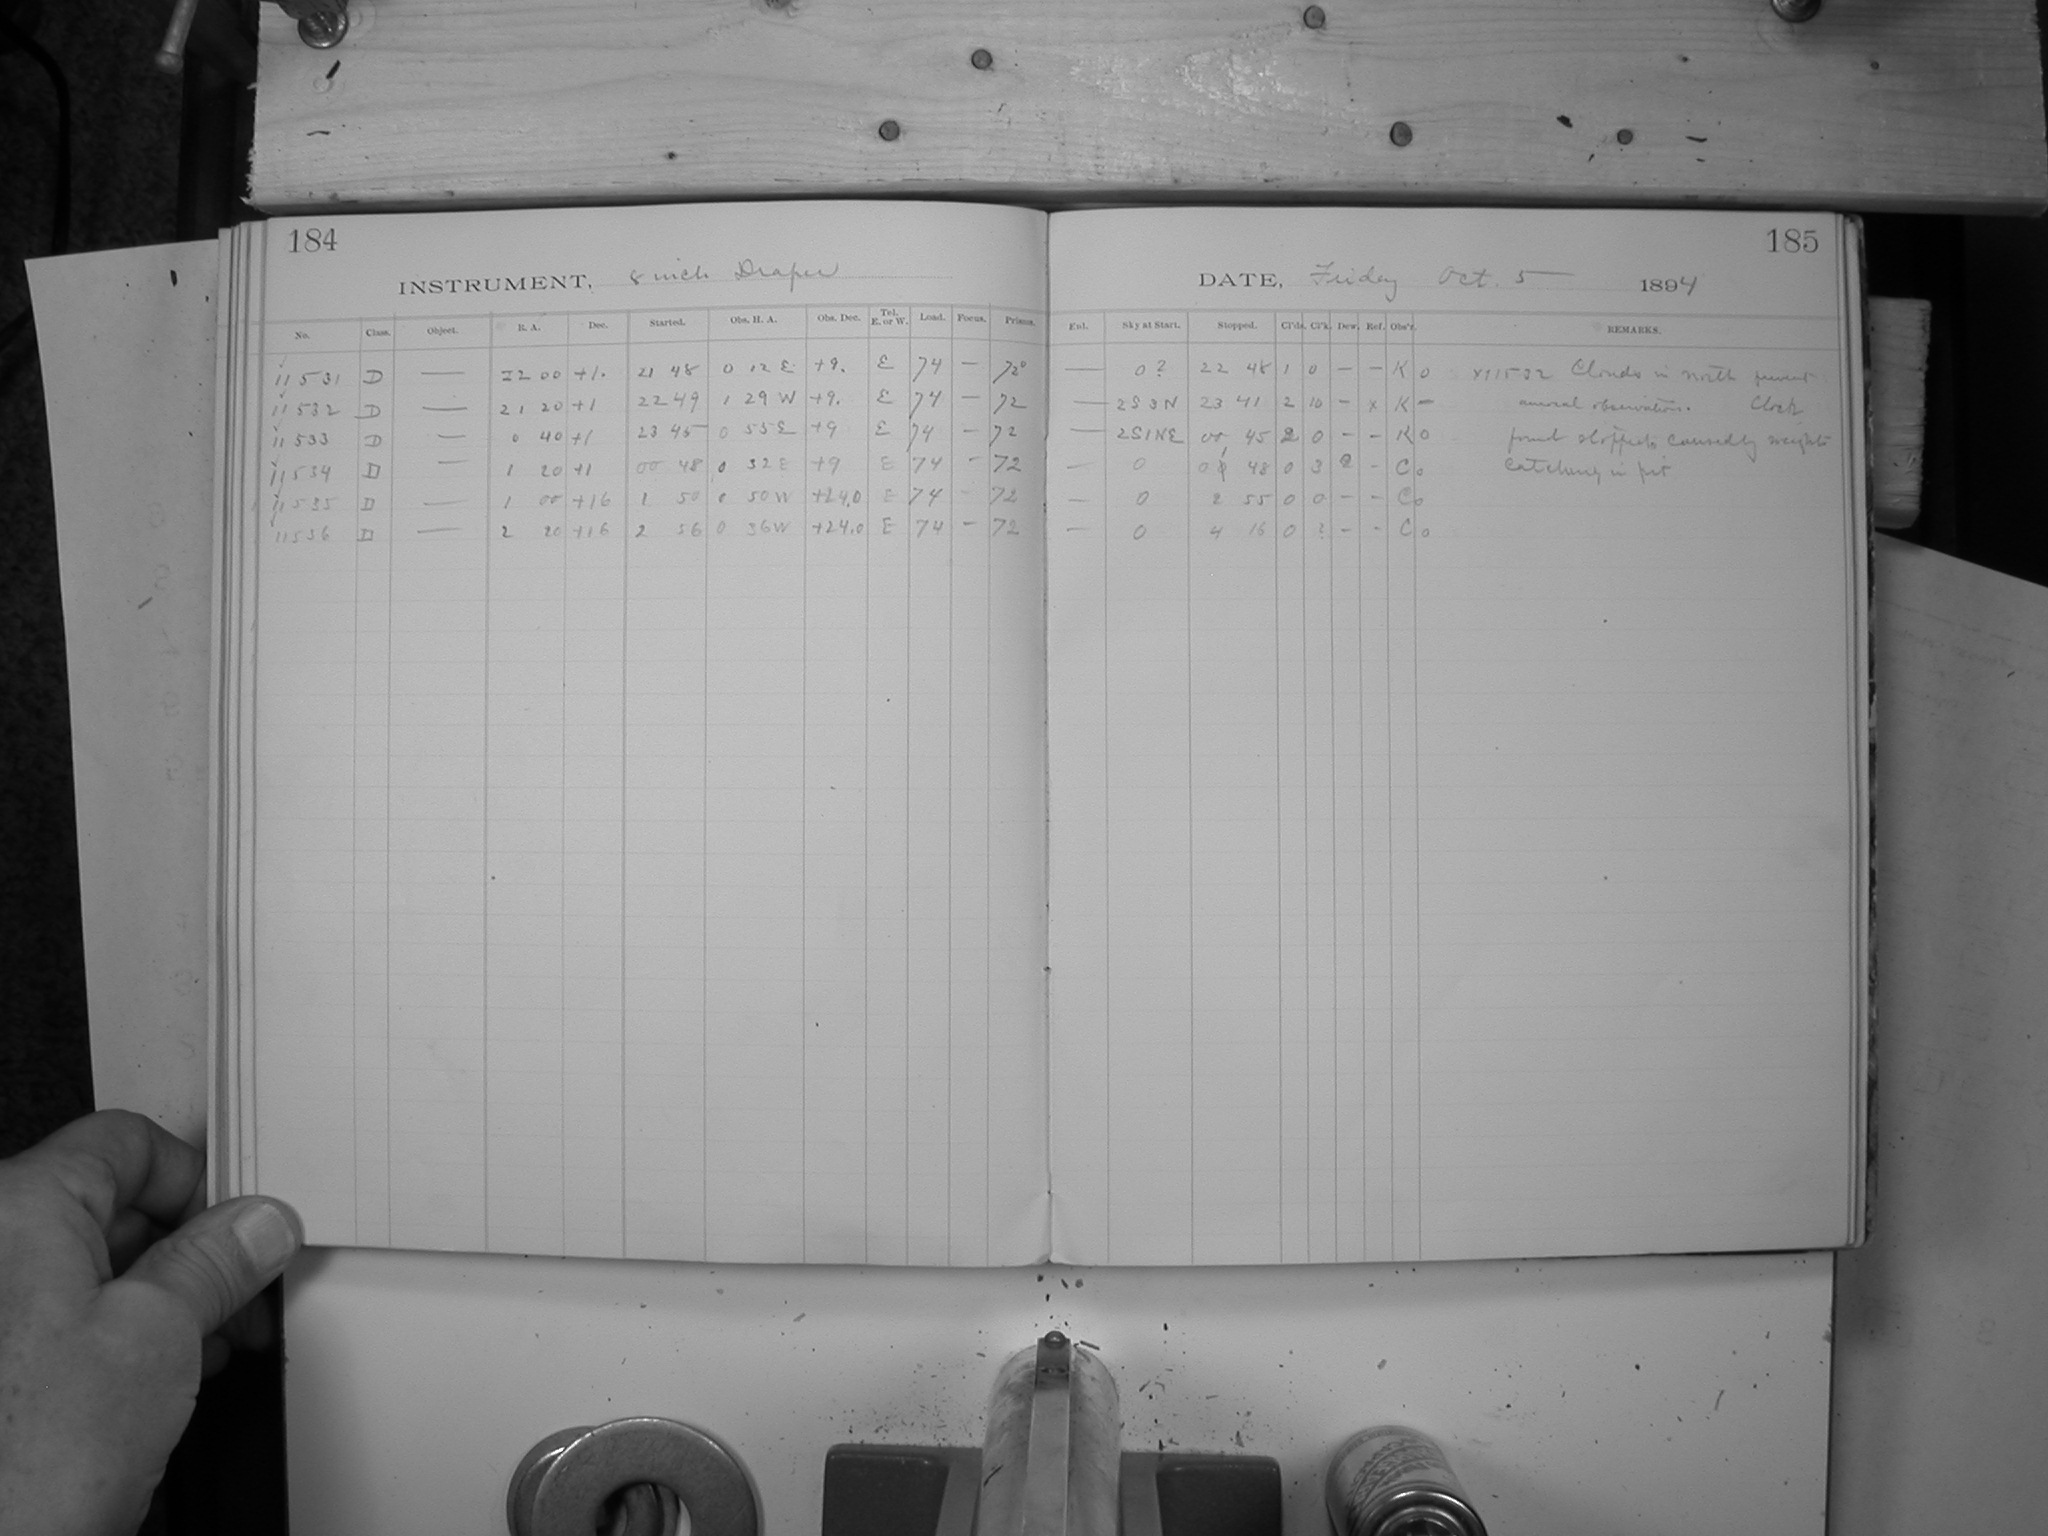 184
INSTRUMENT, 8 inch Draper
No. Class. Object. R. A. Dec. Started. Obs. H. A. Obs. Dec. Tel. E. or W. Load. Focus. Prisms.
11531 D — 22 00 +1. 21 48 0 12 E +9. E 74 — 72
11532 D — 21 20 +1 22 49 1 29 W +9. E 74 — 72
11533 D — 0 40 +1 23 45 0 55 E +9 E 74 — 72
11534 D — 1 20 +1 00 48 0 32 E +9 E 74 - 72
11535 D — 1 00 +16 1 50 0 50 W +24.0 E 74 - 72
11536 D — 2 20 +16 2 56 0 36 W +24.0 E 74 - 72
185
DATE, Friday Oct. 5 1894
Enl. Sky at Start. Stopped. Cl'ds. Cl'k. Dew. Ref. Obs'r. REMARKS.
— 0? 22 48 1 0 — — K 0 x11532 Clouds in north prevent
— 2S3N 23 41 2 10 - x K — observations. Clock
— 2S1NE 00 45 2 0 - - K 0 found stopped caused by weights
— 0 48 0 3 - C 0 catching in pit
— 0 2 55 0 0 - - C 0
— 0 4 16 0 ? - - C 0